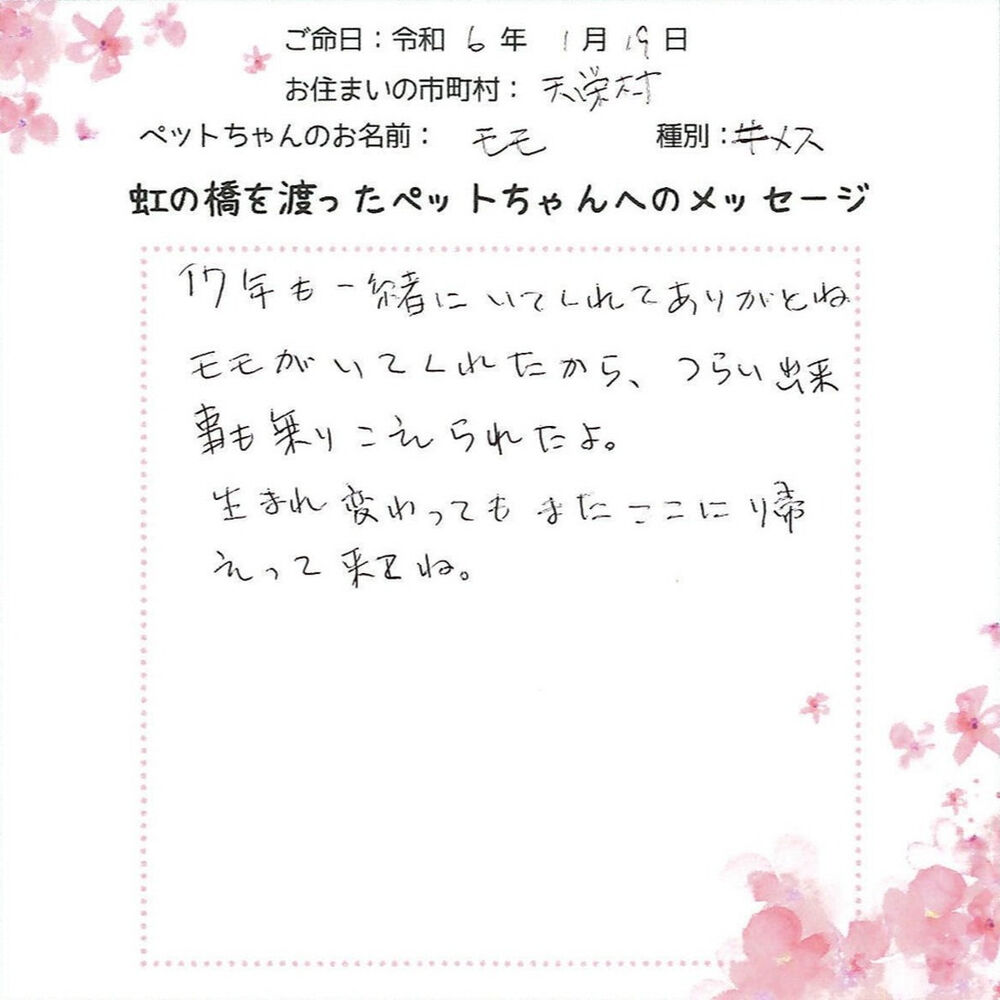 ご命日：令和 6 年 1 月 19 日
お住まいの市町村： 天栄村
ペットちゃんのお名前： モモ 種別：メス
虹の橋を渡ったペットちゃんへのメッセージ
17年も一緒にいてくれてありがとね
モモがいてくれたから、つらい出来
事も乗りこえられたよ。
生まれ変わってもまたここに帰
えって来てね。